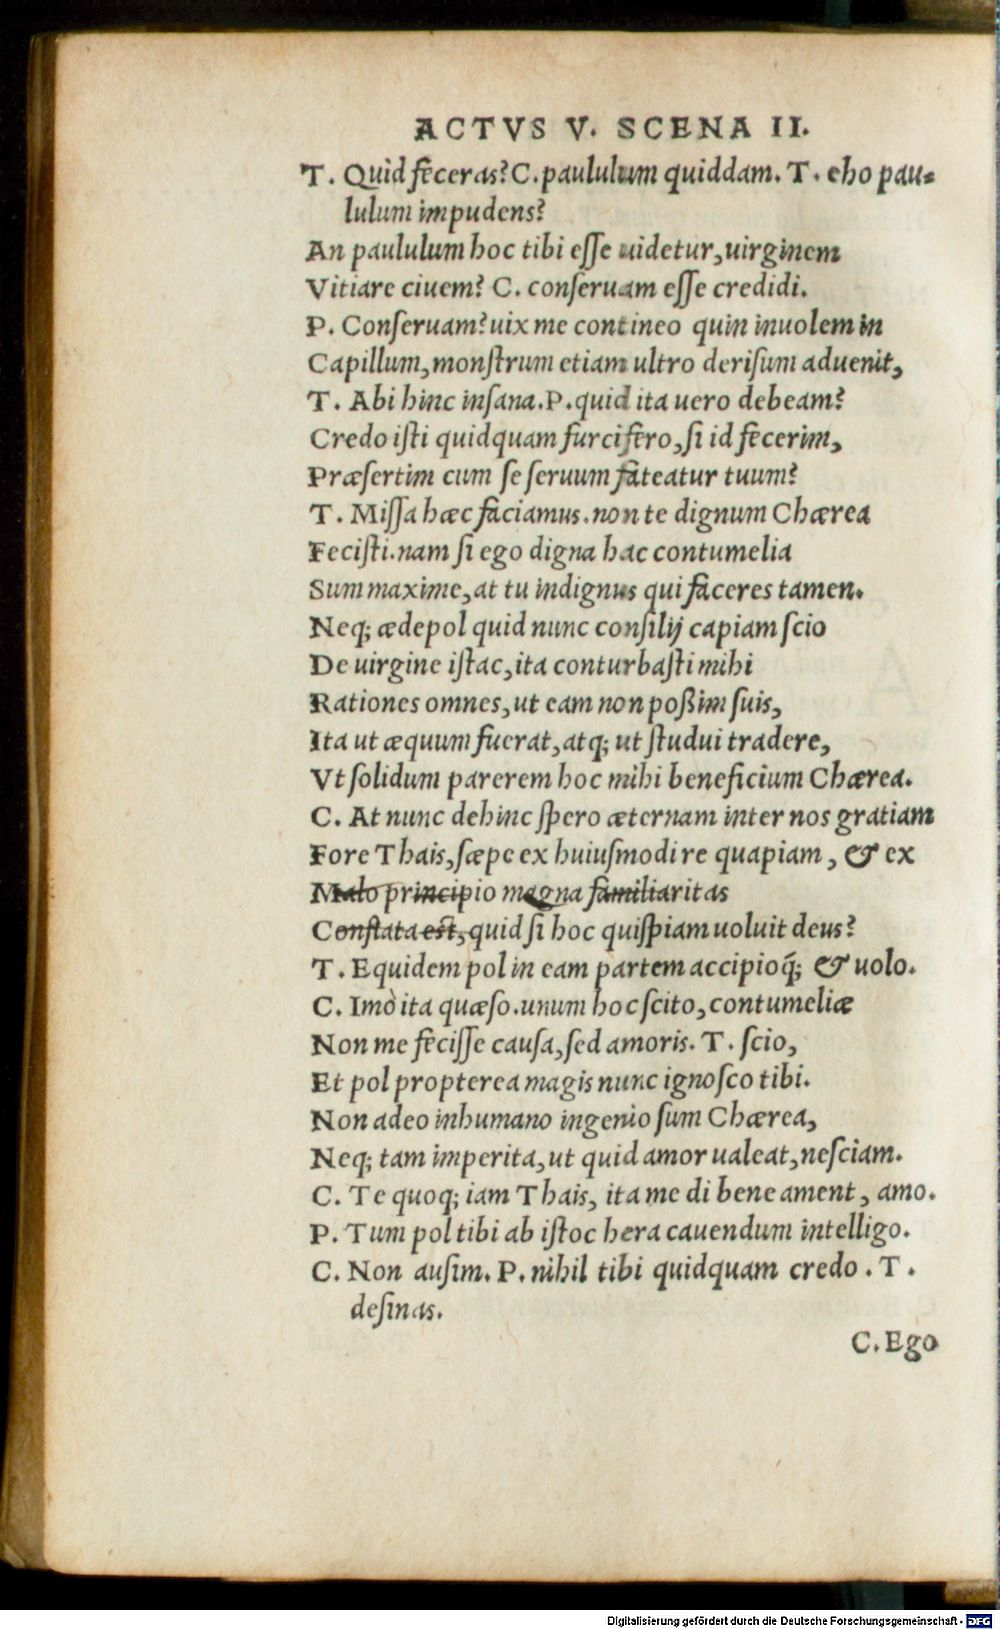 ACTVS V. SCENA II.
T. Quid feceras? C. paululum quiddam. T. eho pau-
lulum impudens?
An paululum hoc tibi esse uidetur, uirginem
Vitiare ciuem? C. conseruam esse credidi.
P. Conseruam? uix me contineo quin inuolem in
Capillum, monstrum etiam ultro derisum aduenit,
T. Abi hinc insana. P. quid ita uero debeam?
Credo isti quidquam furcifero, si id fecerim,
Præsertim cum se seruum fateatur tuum?
T. Missa hæc faciamus. non te dignum Chærea
Fecisti. nam si ego digna hac contumelia
Sum maxime, at tu indignus qui faceres tamen.
Neq; ædepol quid nunc consilij capiam scio
De uirgine istac, ita conturbasti mihi
Rationes omnes, ut eam non poßim suis,
Ita ut æquum fuerat, atq; ut studui tradere,
Vt solidum parerem hoc mihi beneficium Chærea.
C. At nunc dehinc spero æternam inter nos gratiam
Fore Thais, sæpe ex huiusmodi re quapiam, & ex
Malo principio magna familiaritas
Conflata est, quid si hoc quispiam uoluit deus?
T. Equidem pol in eam partem accipioq́; & uolo.
C. Imò ita quæso. unum hoc scito, contumeliæ
Non me fecisse causa, sed amoris. T. scio,
Et pol propterea magis nunc ignosco tibi.
Non adeo inhumano ingenio sum Chærea,
Neq; tam imperita, ut quid amor ualeat, nesciam.
C. Te quoq; iam Thais, ita me di bene ament, amo.
P. Tum pol tibi ab istoc hera cauendum intelligo.
C. Non ausim. P. nihil tibi quidquam credo. T.
desinas.
C. Ego
Digitalisierung gefördert durch die Deutsche Forschungsgemeinschaft - DFG